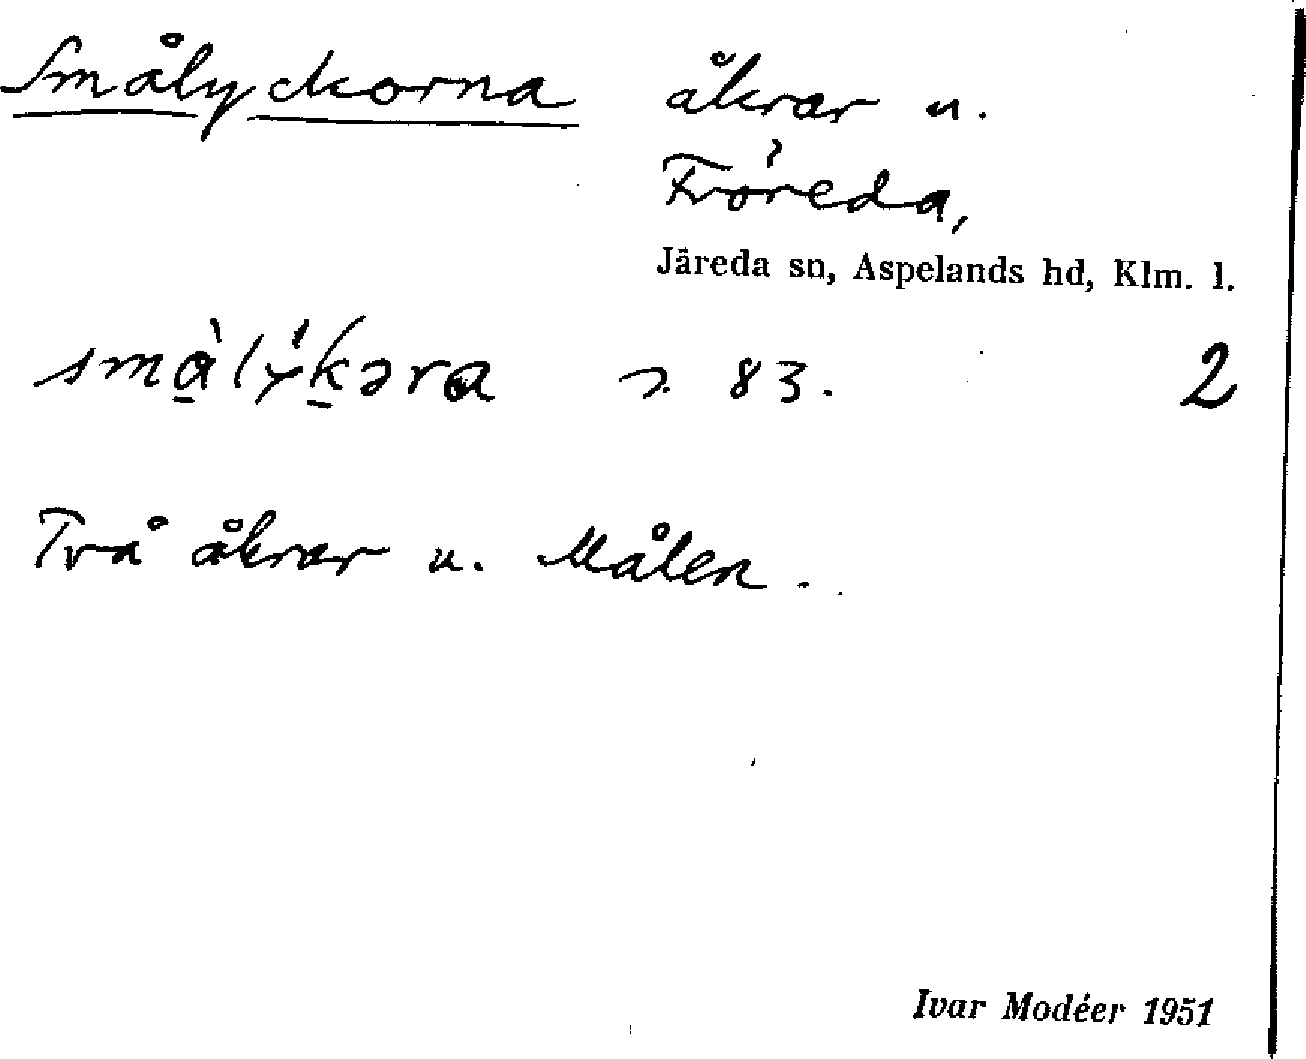 Smålyckorna åkrar u.
Fröreda,
Järeda sn, Aspelands hd, Klm. l.
smà̱lý̱kəra s. 83. 2
Två åkrar u. Målen.
Ivar Modéer 1951